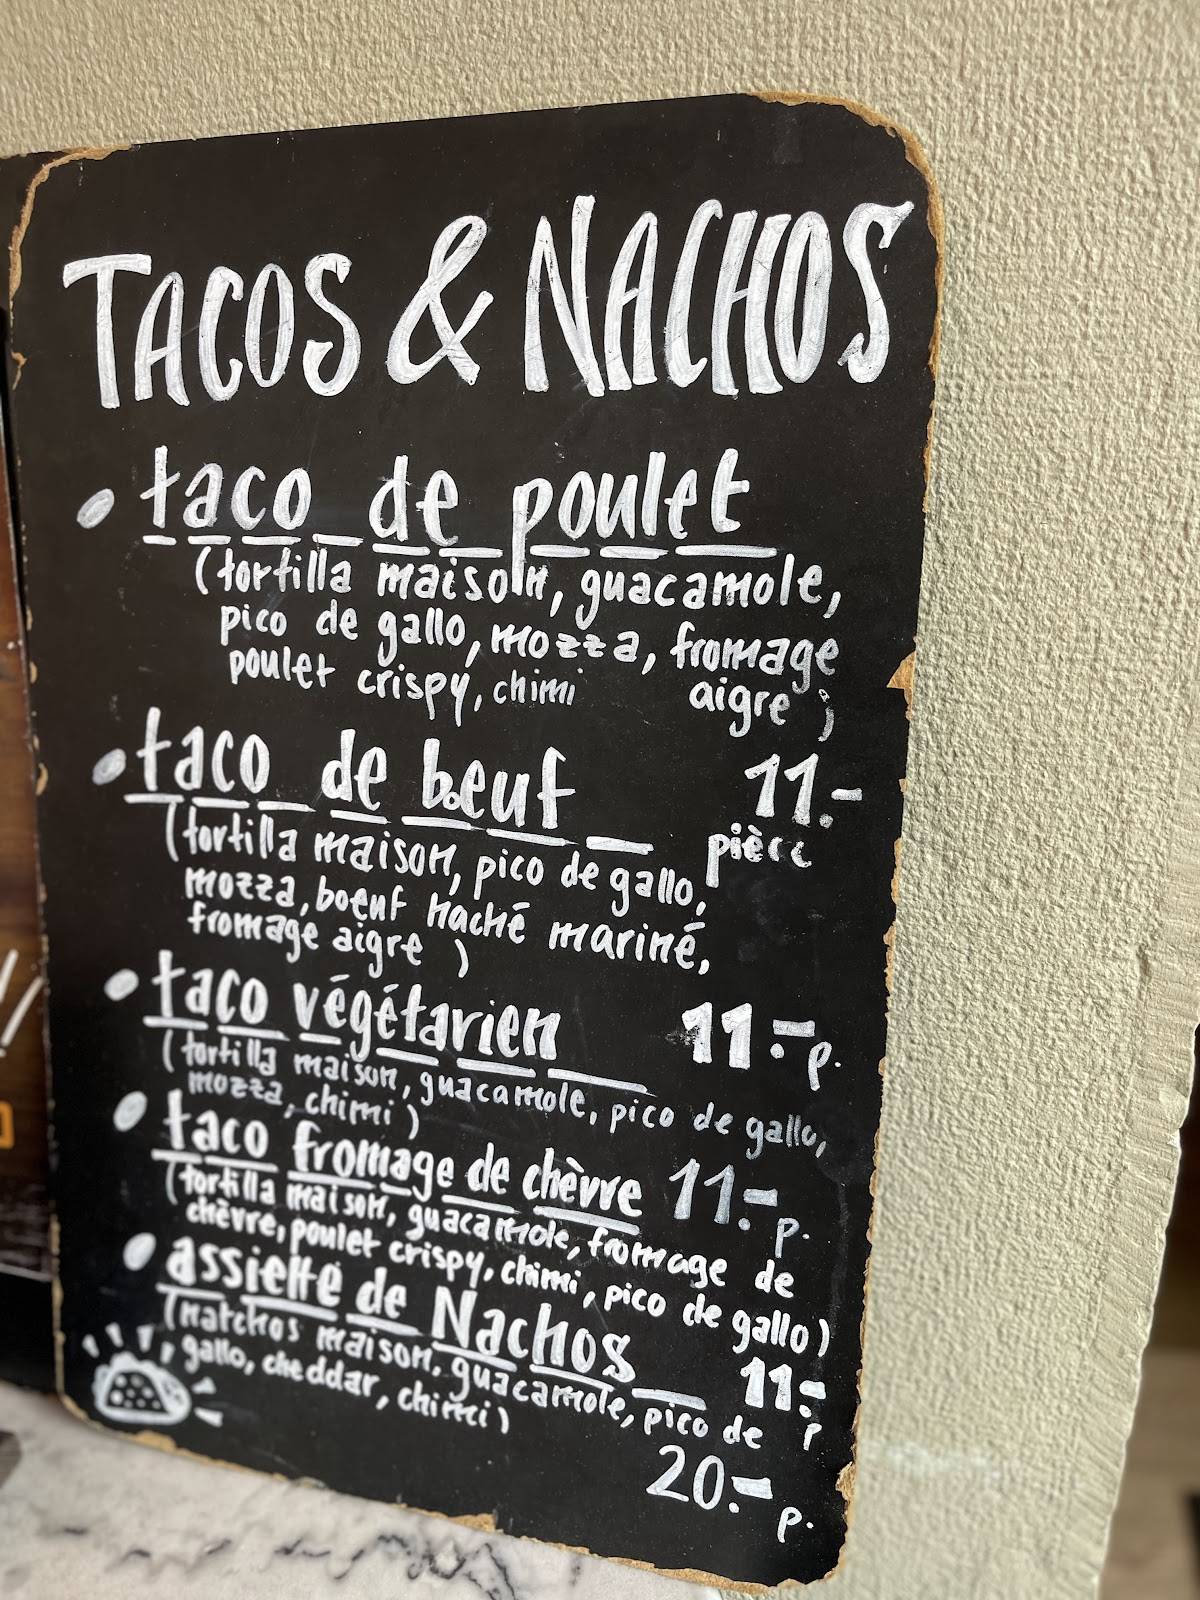 TACOS & NACHOS
• taco de poulet
(tortilla maison, guacamole,
pico de gallo, mozza, fromage
aigre)
poulet crispy, chimi
11.-
pièce
• taco de bœuf
(tortilla maison, pico de gallo,
mozza, boeuf haché mariné,
fromage aigre)
11.- p.
• taco végétarien
(tortilla maison, guacamole, pico de gallo,
mozza, chimi)
11.- p.
• taco fromage de chèvre
(tortilla maison, guacamole, fromage de
chèvre, poulet crispy, chimi, pico de gallo)
11.- p
• assiette de Nachos
(natchos maison, guacamole, pico de
gallo, cheddar, chimi)
20.- p.